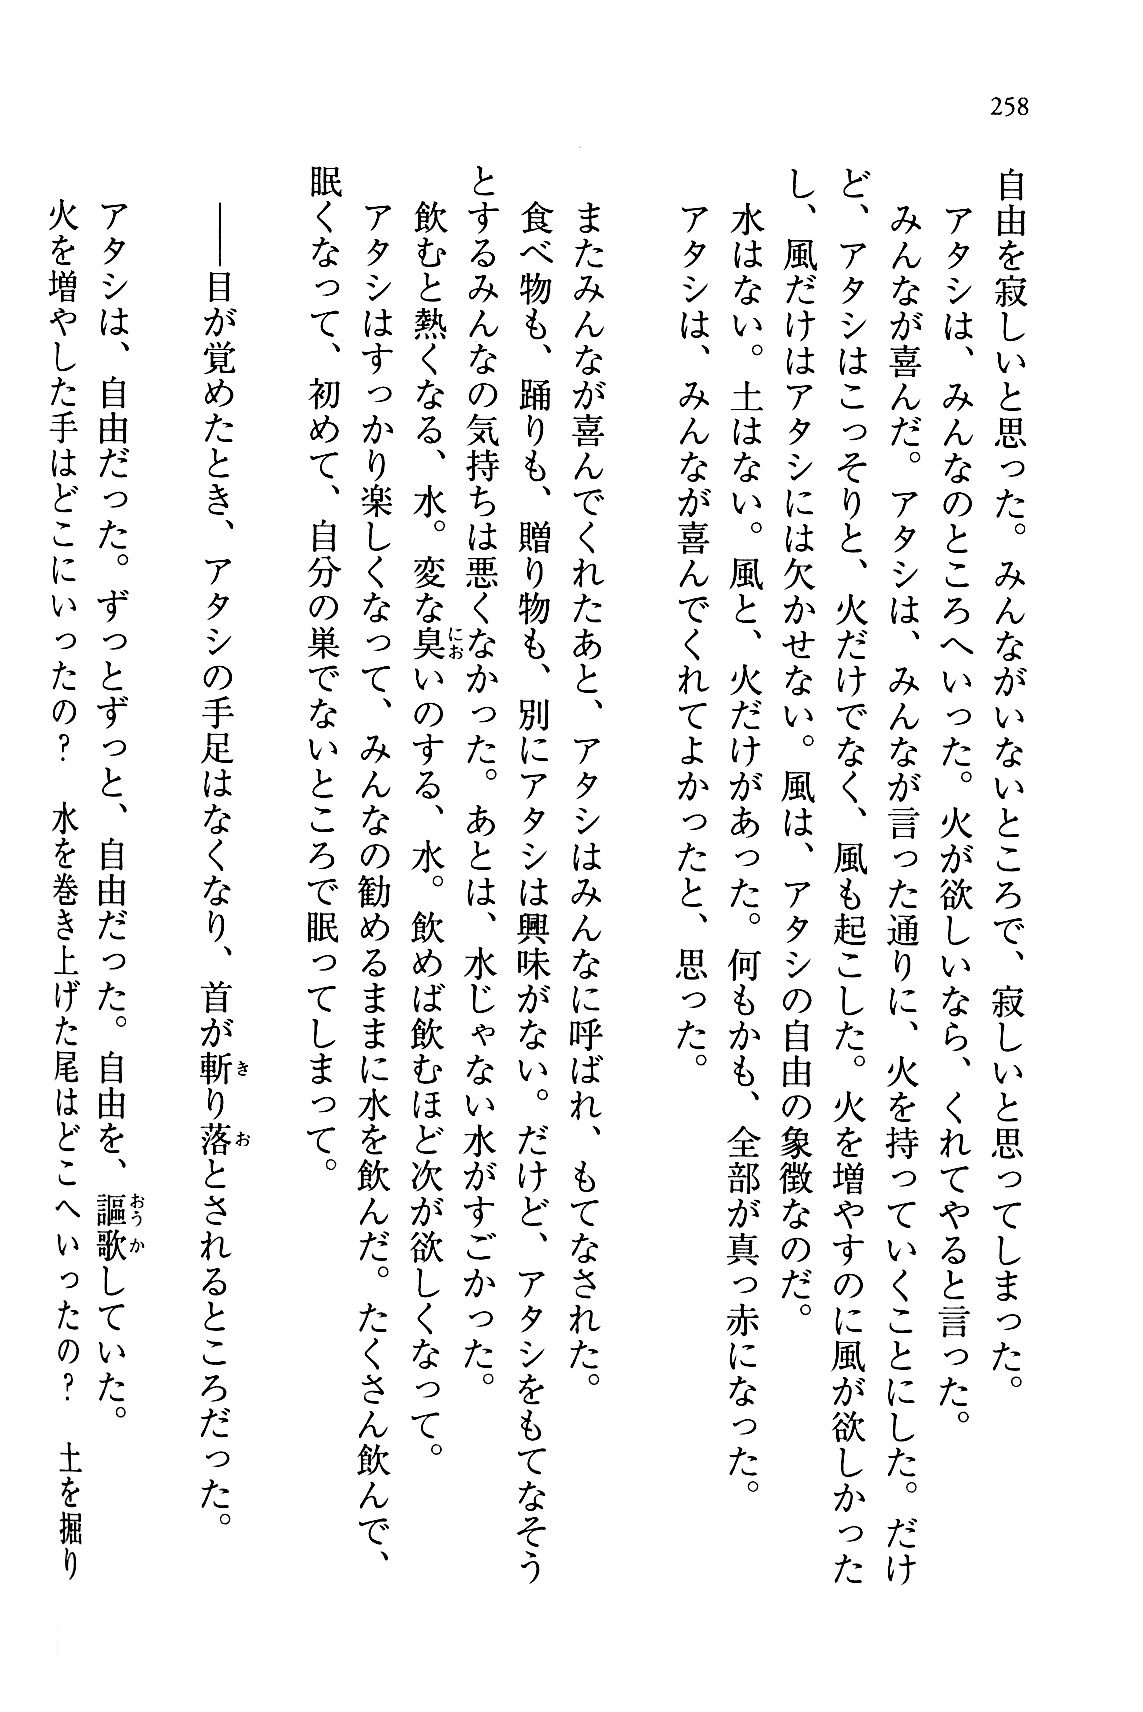 258
自由を寂しいと思った。みんながいないところで、寂しいと思ってしまった。
アタシは、みんなのところへいった。火が欲しいなら、くれてやると言った。
みんなが喜んだ。アタシは、みんなが言った通りに、火を持っていくことにした。だけ
ど、アタシはこっそりと、火だけでなく、風も起こした。火を増やすのに風が欲しかった
し、風だけはアタシには欠かせない。風は、アタシの自由の象徴なのだ。
水はない。土はない。風と、火だけがあった。何もかも、全部が真っ赤になった。
アタシは、みんなが喜んでくれてよかったと、思った。
またみんなが喜んでくれたあと、アタシはみんなに呼ばれ、もてなされた。
食べ物も、踊りも、贈り物も、別にアタシは興味がない。だけど、アタシをもてなそう
とするみんなの気持ちは悪くなかった。あとは、水じゃない水がすごかった。
飲むと熱くなる、水。変な臭いのする、水。飲めば飲むほど次が欲しくなって。
アタシはすっかり楽しくなって、みんなの勧めるままに水を飲んだ。たくさん飲んで、
眠くなって、初めて、自分の巣でないところで眠ってしまって。
――目が覚めたとき、アタシの手足はなくなり、首が斬り落とされるところだった。
アタシは、自由だった。ずっとずっと、自由だった。自由を、謳歌していた。
火を増やした手はどこにいったの？　水を巻き上げた尾はどこへいったの？　土を掘り